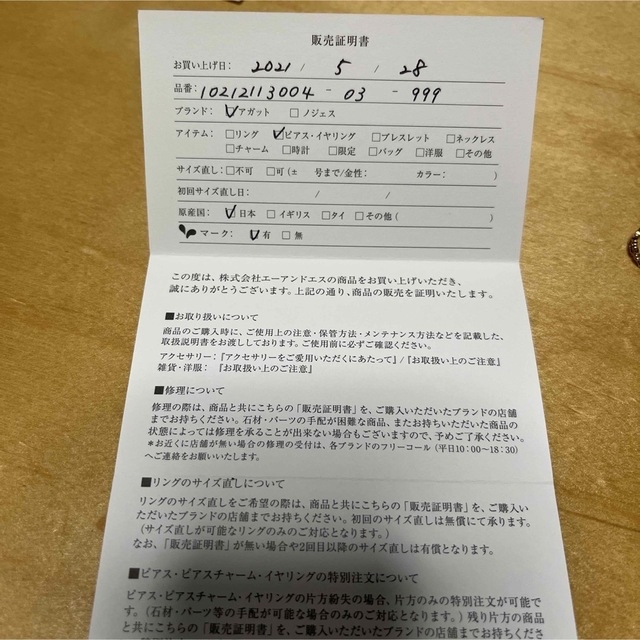 販売証明書
お買い上げ日： 2021 / 5 / 28
品番： 10212113004 - 03 - 999
ブランド： ☑アガット □ノジェス
アイテム： □リング ☑ピアス・イヤリング □ブレスレット □ネックレス
□チャーム □時計 □限定 □バッグ □洋服 □その他
サイズ直し： □不可 □可（± 号まで/金性： カラー： ）
初回サイズ直し日： / /
原産国： ☑日本 □イギリス □タイ □その他（ ）
マーク： ☑有 □無
この度は、株式会社エーアンドエスの商品をお買い上げいただき、
誠にありがとうございます。上記の通り、商品の販売を証明いたします。
■お取り扱いについて
商品のご購入時に、ご使用上の注意・保管方法・メンテナンス方法などを記載した、
取扱説明書をお渡ししております。ご使用前に必ずご確認ください。
アクセサリー：『アクセサリーをご愛用いただくにあたって』/『お取扱い上のご注意』
雑貨・洋服： 『お取扱い上のご注意』
■修理について
修理の際は、商品と共にこちらの「販売証明書」を、ご購入いただいたブランドの店舗
までお持ちください。石材・パーツの手配が困難な商品、またお持ちいただいた商品の
状態によっては修理を承ることが出来ない場合もございますので、予めご了承ください。
＊お近くに店舗が無い場合の修理の受付は、各ブランドのフリーコール（平日10：00〜18：30）
へご連絡をお願いいたします。
■リングのサイズ直しについて
リングのサイズ直しをご希望の際は、商品と共にこちらの「販売証明書」を、ご購入い
ただいたブランドの店舗までお持ちください。初回のサイズ直しは無償にて承ります。
（サイズ直しが可能なリングのみのご対応となります。）
なお、「販売証明書」が無い場合や2回目以降のサイズ直しは有償となります。
■ピアス・ピアスチャーム・イヤリングの特別注文について
ピアス・ピアスチャーム・イヤリングの片方紛失の場合、片方のみの特別注文が可能で
す。（石材・パーツ等の手配が可能な場合のみのご対応となります。）残り片方の商品
と共にこちらの「販売証明書」を、ご購入いただいたブランドの店舗までお持ち